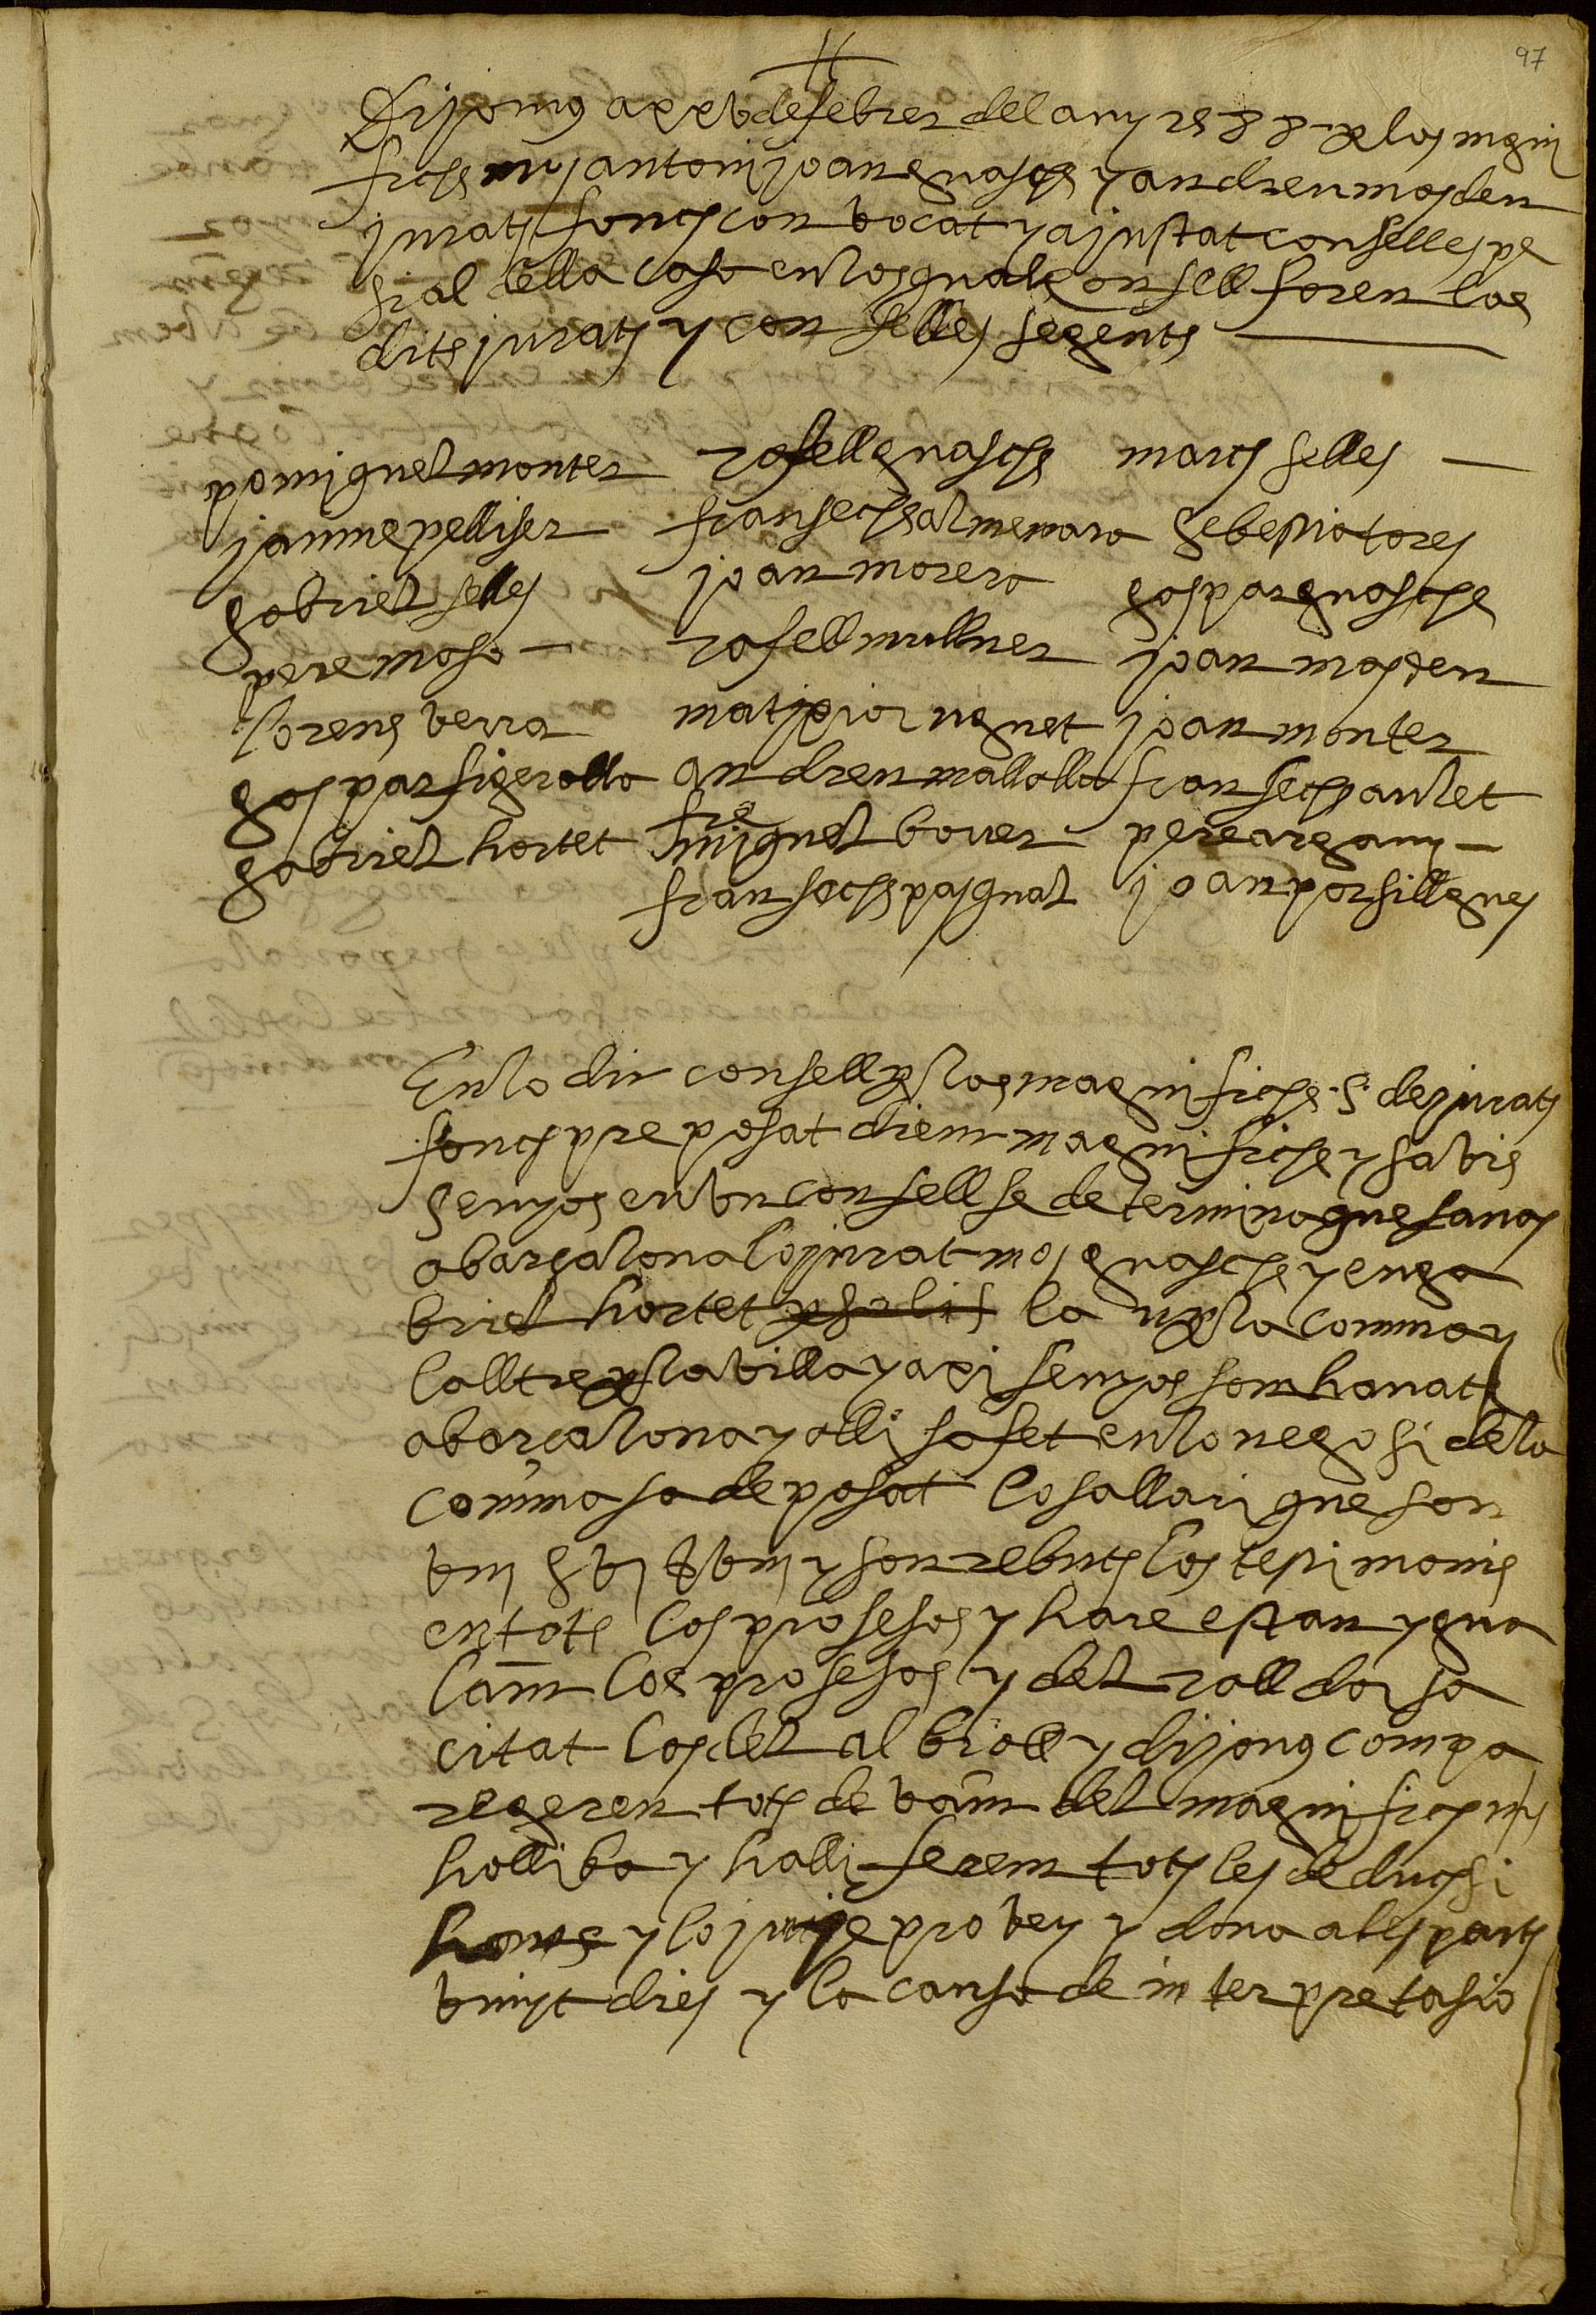 97
Dijous a xxv de febrer del any los magni
fichs mos antoni joan guasch y andreu masdeu
jurats fonch con vocat y ajustat consell espe
sial della casa en lo qual consell foren los
dits jurats y con selles segents
po miquel monter
jaume pelliser
gabriel selles
pere maso
lorens verra
gaspar figerolla
gabriel hortet
rafell guasch
fransech salmemara
joan morera
rafell mullner
matia noguet
andreu mallolla
fre
miquel bover
fransech pasqual
march selles
sebestia tores
gaspar guasch
joan masdeu
joan monter
fransech paulet
pere aragany
joan porsillgues
En lo dit consell p los magnifichs s. de jurats
fonch pre posat dient magnifichs y savis
senyos en un consell se determina que fanas
a barçalona lo jurat mos guasch y en ga
briel hortet la u p la comma y
lalltre p la villa y axi senyos som hanats
a barçalona y alli sa fet en lo negosi de la
comma sa de posat lo sallari que son
y son rebuts los testimonis
en tots los prosesos y hare estan ygua
lam los prosesos y del rall da sa
citat los del albioll y dijous compa
regerem tots de vam del magnifich mj
halliba y halli ferem tots les de duchsi
hons y lo jutje provey y dona a les parts
vinyt dies y la causa de inter pretasio